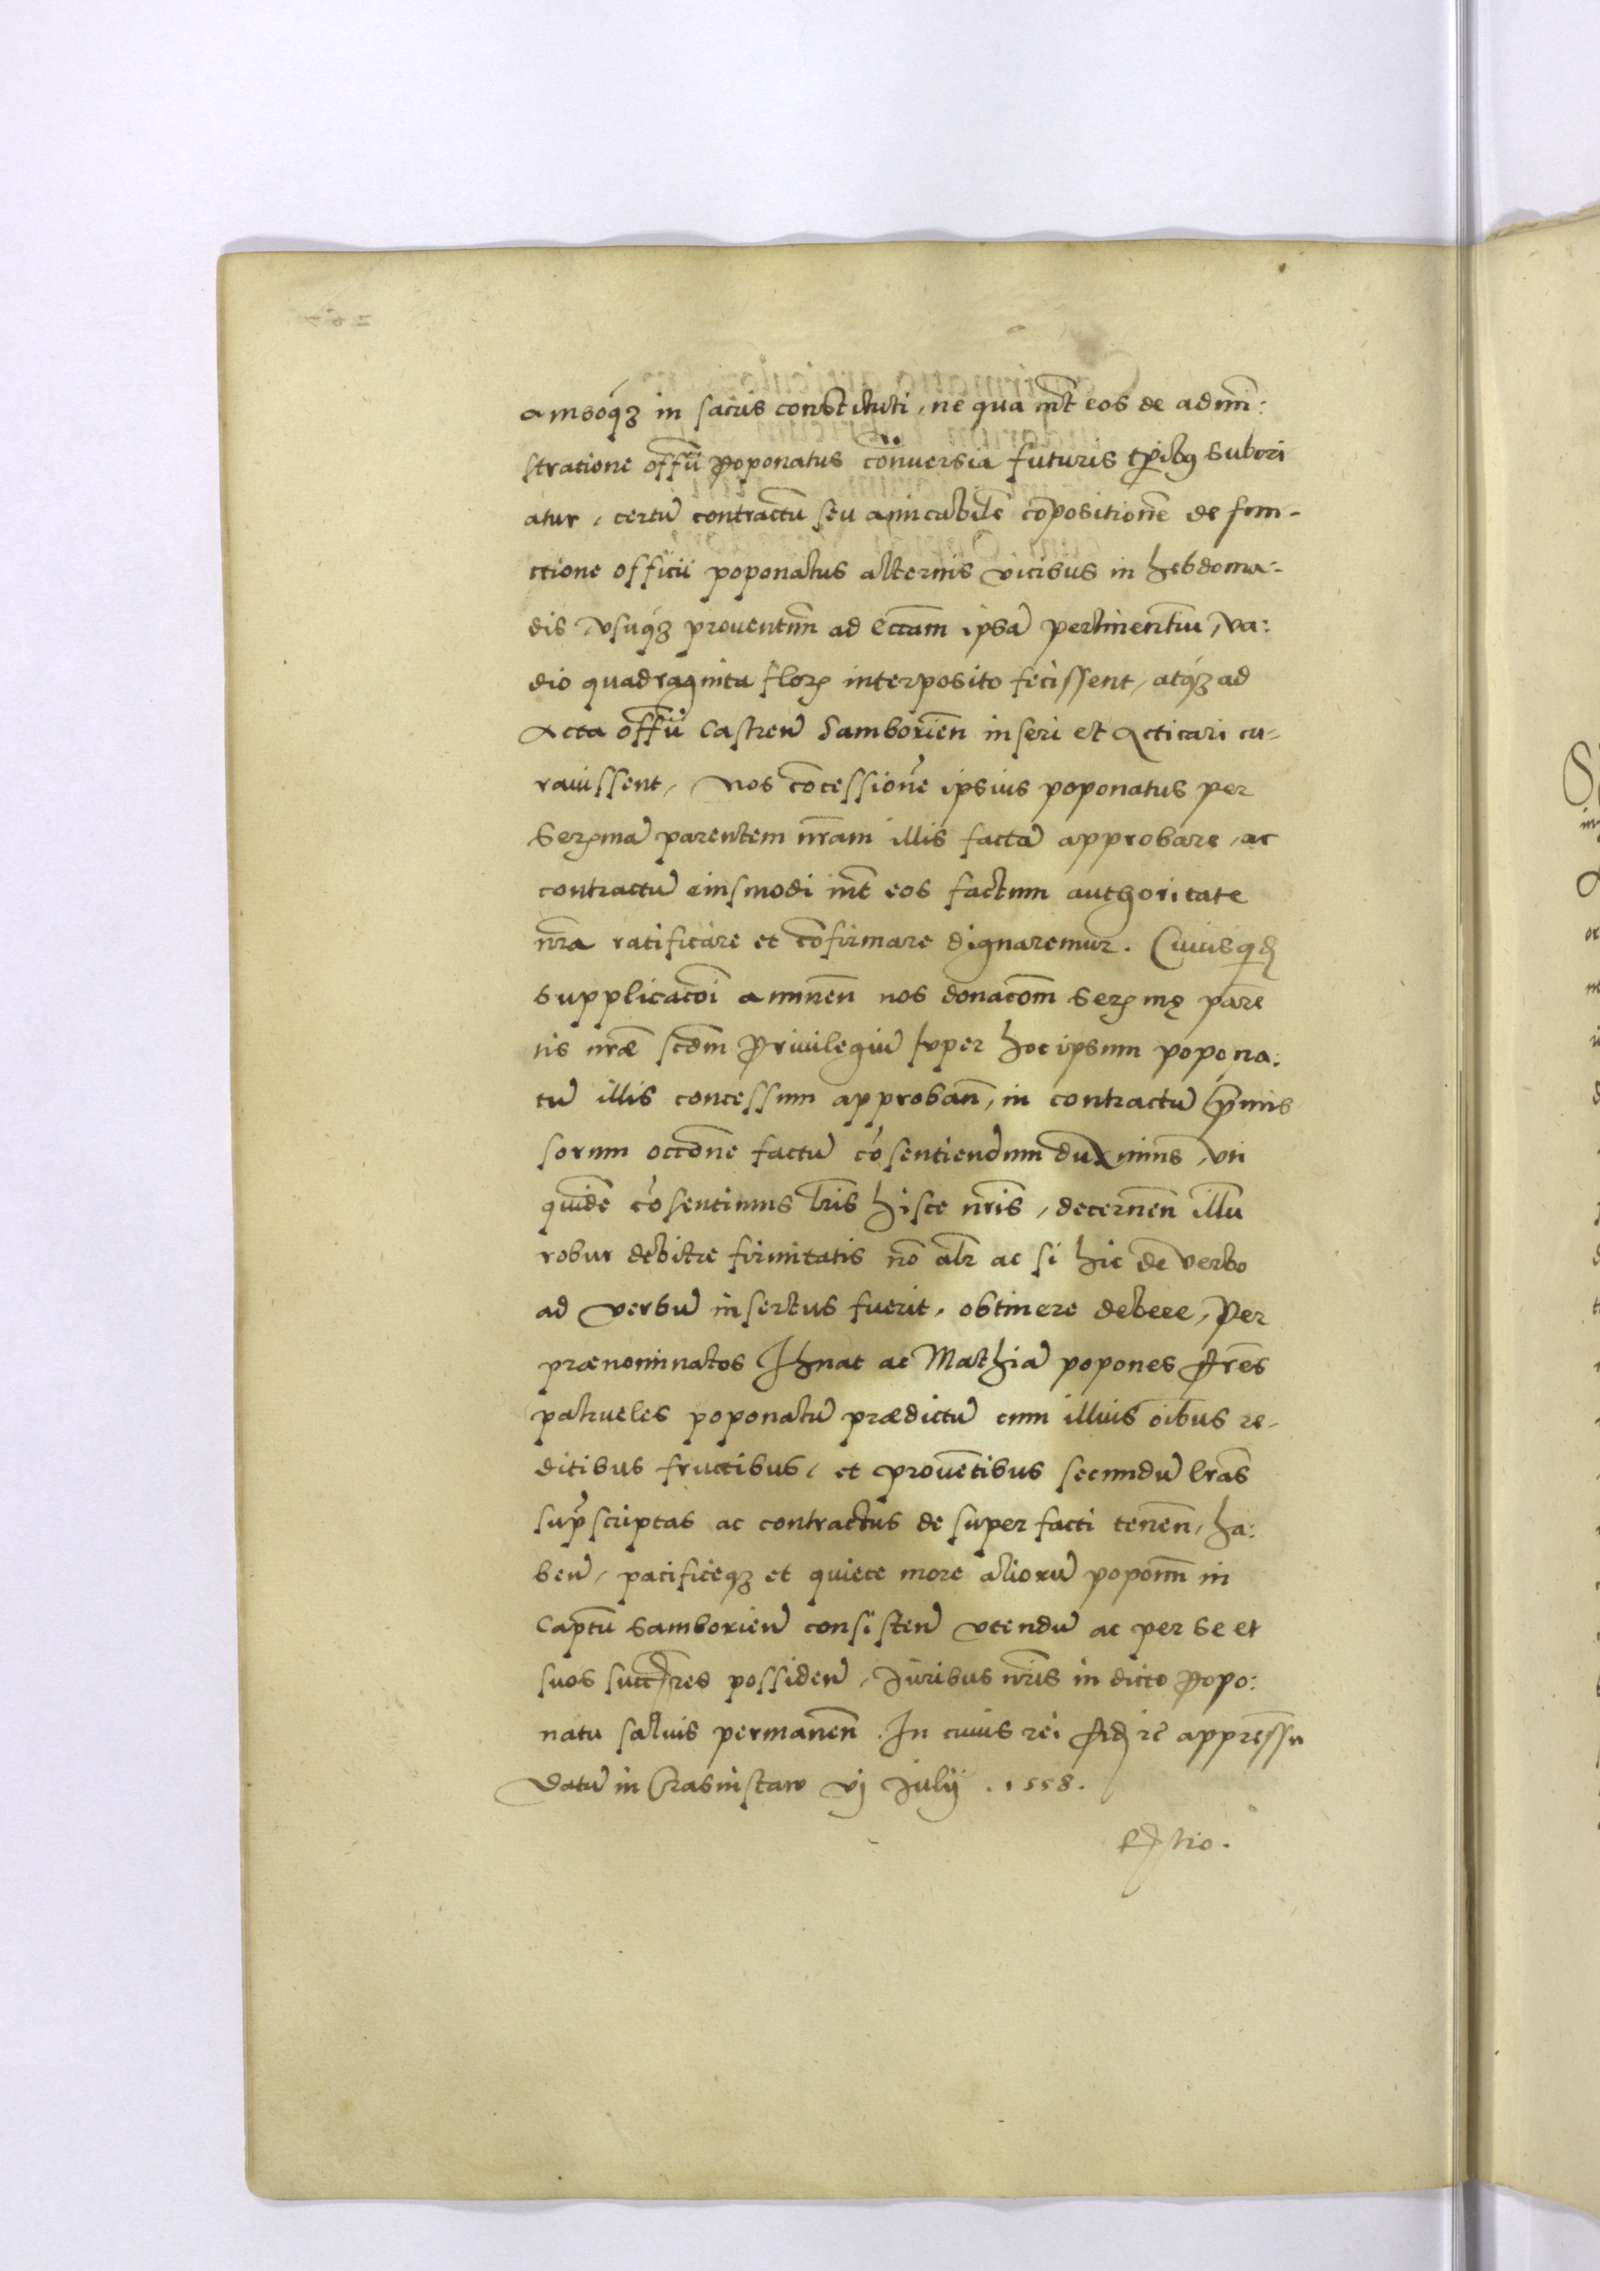 amboq́ʒ in sacris constituti, ne qua int̃ eos de admi͂:
stratione offii͂ Poponatus co͂nuersia futuris tp̃ibus subori
atur, certu͂ contractu͂ seu amicabile͂ co͂positione͂ de fun-
ctione officii poponatus alternis vicibus in hebdoma:
dis, vsuq́ʒ prouentuu͂ ad eccam͂ ipsa͂ pertinentiu͂, va:
dio quadraginta floꝝ interposito fecissent, atq́ʒ ad
Acta offii͂ Castren͂ Samborien͂ inseri et Acticari cu-
rauissent, Nos co͂cessione͂ ipsius poponatus per
Serꝫma͂ parentem nr͂am illis facta͂ approbare, ac
contractu͂ eiusmodi int͂ eos factum authoritate
nr͂a ratificare et co͂firmare dignaremur. Cuius qd͂
supplicatoi͂ annuen͂ nos donacom͂ Serꝫmę pare͂
tis nr͂æ scdm͂ Priuilegiu͂ super hoc ipsum popona:
tu͂ illis concessum approban͂, in contractu͂ p͂mis
sorum occone͂ factu͂ co͂sentiendum duximus͂, vti
quide͂ co͂sentimus lr͂is hisce nr͂is, decernen͂ illu͂
robur debitæ firmitatis no͂ alr͂ ac si hic de͂ verbo
ad verbu͂ insertus fuerit, obtinere debere, Per
prænominatos Ihnat ac Mathia͂ popones fr͂es
patrueles poponatu͂ prædictu͂ cum illius oi͂bus re-
ditibus fructibus, et prouentibus secundu͂ lr͂as
supr͂scriptas ac contractus de super facti tenen͂, ha:
ben͂, pacificeq́ʒ et quiete more alioru͂ poponu͂ in
Captu͂ Samborien͂ consisten͂ vtendu͂ ac per se et
suos succ͂res possiden͂, Juribus nr͂is in dicto Popo:
natu saluis permanen͂. In cuius rei fid͂ ꝛc͂ appress͂u
Datu͂ in Crasnistaw vj Julij . 1558.